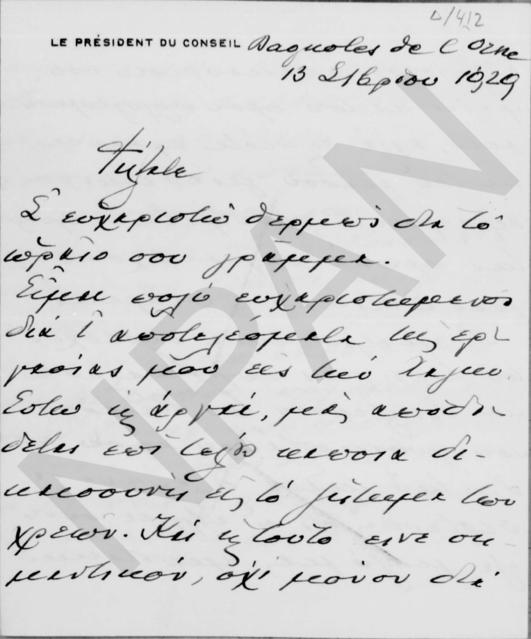 Δ/412
LE PRÉSIDENT DU CONSEIL Bagnoles de l'Orne
13 Σ/βρίου 1929
Φίλτατε
Σ' ευχαριστώ θερμώς δια το
ωραίο σου γράμμα.
Είμαι πολύ ευχαριστημένος
διά τ' αποτελέσματα της ερ-
γασίας μου εις την Χάγην.
Έστω κ' αργά, μας αποδί-
δεται επί τέλους κάποια δι-
καιοσύνη εις το ζήτημα των
χρεών. Και τούτο είνε ση-
μαντικόν, όχι μόνον διά
NPAN